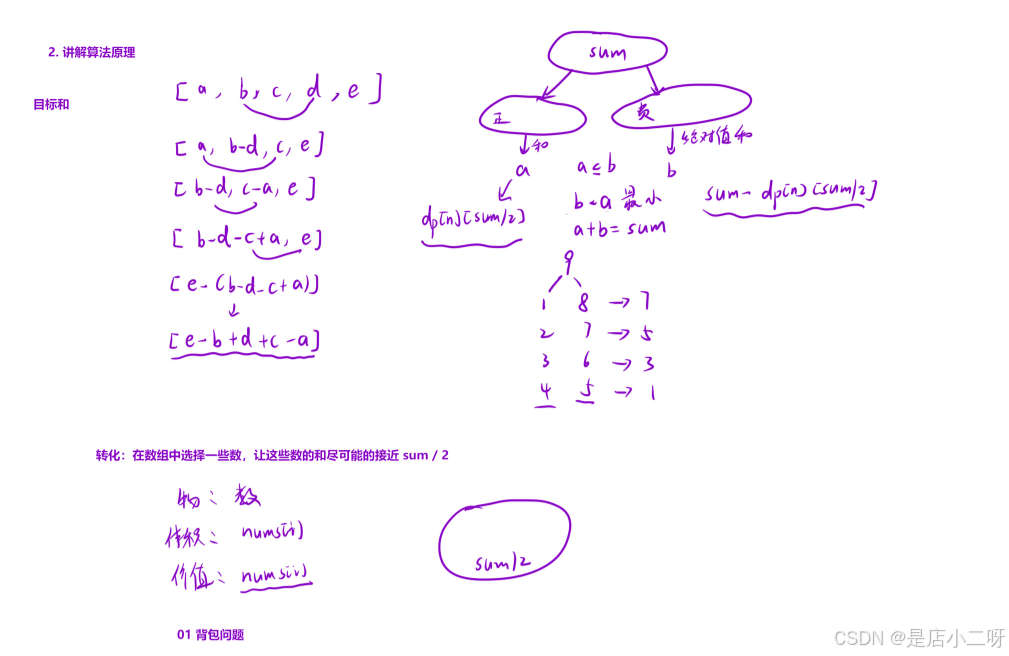 2. 讲解算法原理
目标和
[a, b, c, d, e]
[a, b-d, c, e]
[b-d, c-a, e]
[b-d-c+a, e]
[e-(b-d-c+a)]
[e-b+d+c-a]
sum
正
负
和
绝对值和
a
a≤b
b
dp[n][sum/2]
b-a 最小
sum- dp[n][sum/2]
a+b=sum
9
1 8 → 7
2 7 → 5
3 6 → 3
4 5 → 1
转化：在数组中选择一些数，让这些数的和尽可能的接近 sum / 2
物：数
体积：nums[i]
价值：nums[i]
sum/2
01 背包问题
CSDN @是店小二呀